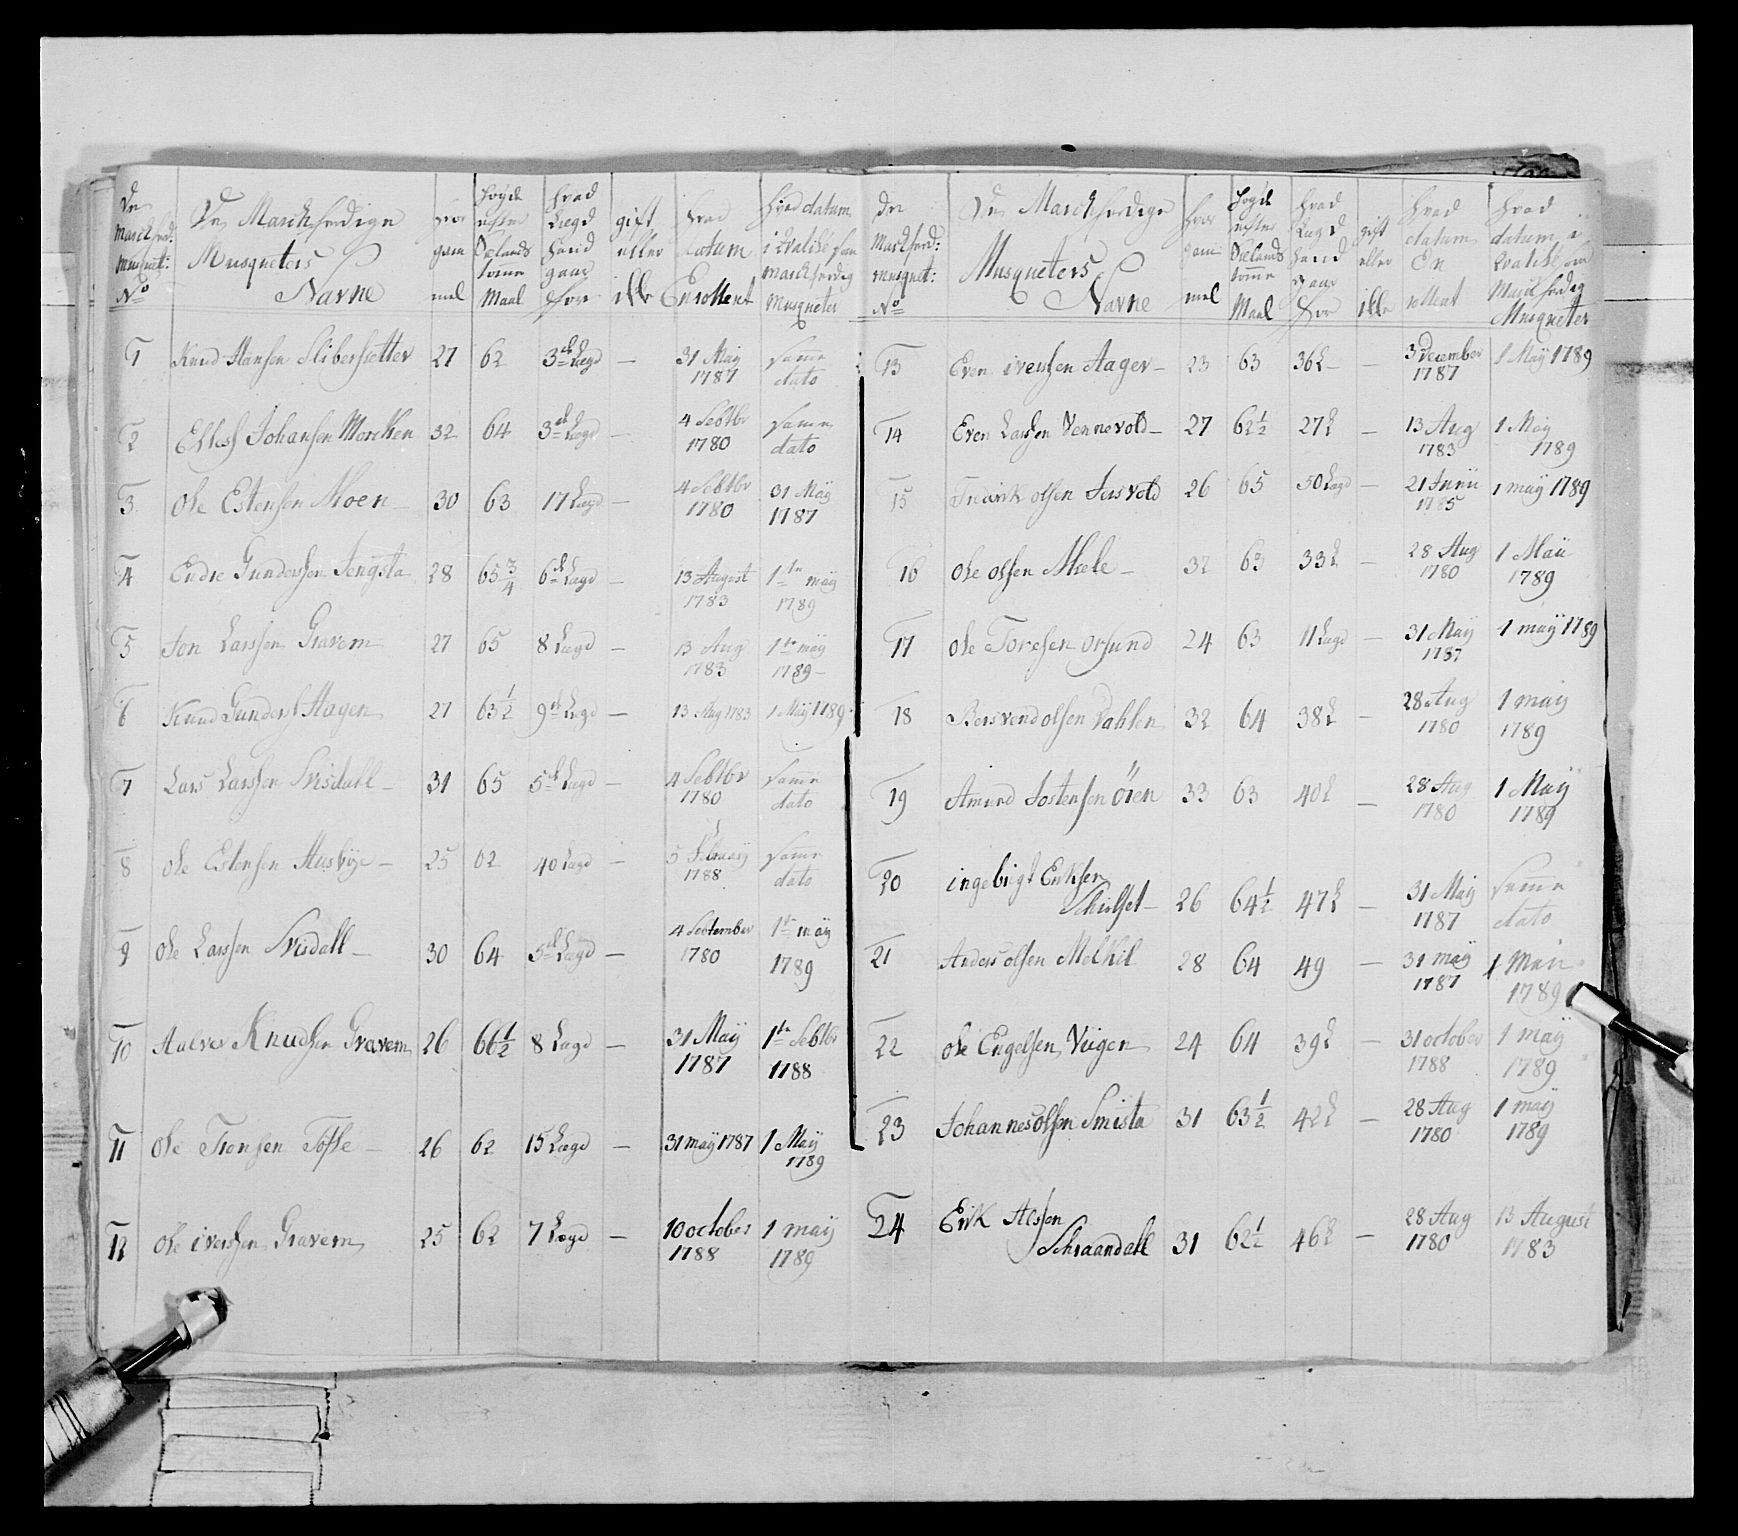 De Marchferd: Musquet: No | De Marchferdige Musqueters Navne | hvor gam mel | høyde efter Siælands tomme Maal | hvad Lægd hand gaar for | gift eller ikke | hvad datum Enrollert | hvad datum i qvalitè som marchferdig Musqueter
1 Knud Hansen Sliberssetter 27 62 3de Lægd — 31 May 1787 samme dato
2 Johansen Morchen 32 64 3de Lægd — 4 Sebtbr 1780 samme dato
3 Ole Estensen Moen 30 63 17 Lægd — 4 Sebtbr 1780 31 Maÿ 1787
4 Endre Gunderssen Jengsta 28 65 3/4 6te Lægd — 13 August 1783 1te maÿ 1789
5 Jon Larssen Gravem 27 65 8 Lægd — 13 Aug 1783 1te maÿ 1789
6 Knud Gunders Hagen 27 63 1/2 9de Lægd — 13 Aug 1783 1 Maÿ 1789
7 Lars Larssen Svisdall 31 65 5te Lægd — 4 Sebtbr 1780 samme dato
8 Ole Estensen Husbye 25 62 40 Lægd — 5 Februarÿ 1788 samme dato
9 Ole Larssen Svisdall 30 64 5te Lægd — 4 September 1780 1te maÿ 1789
10 Halvor Knudsen Gravem 26 66 1/2 8 Lægd — 31 Maÿ 1787 1te Sebtbr 1788
11 Ole Tronsen Tofte 26 62 15 Lægd — 31 maÿ 1787 1 Maÿ 1789
12 Ole iverssen Gravem 25 62 7 Lægd — 10 october 1788 1 maÿ 1789
De Marchferd: musquet: No | De Marchferdige Musqueters Navne | hvor gam mel | høyde efter Siælands tomme Maal | hvad Lægd hand gaar for | gift eller ikke | hvad datum En rollert | hvad datum i qvalitè som Marchferdig Musqueter
13 Even iverssen Aager 23 63 36 L — 3 December 1787 1 Maÿ 1789
14 Even Larssen Vennevold 27 62 1/2 27 L — 13 Aug 1783 1 Maÿ 1789
15 Fredrik olsen Jersvold 26 65 50 Lægd — 21 Junii 1785 1 maÿ 1789
16 Ole olssen Mele 32 63 33 L — 28 Aug 1780 1 Maÿ 1789
17 Ole Toresen Orsund 24 63 11 Lægd — 31 Maÿ 1787 1 maÿ 1789
18 Bersvend olsen Dahlen 32 64 38 L — 28 Aug 1780 1 maÿ 1789
19 Amund Jostensen Öien 33 63 40 L — 28 Aug 1780 1 Maÿ 1789
20 ingebrigt Eriksen
Schulset 26 64 1/2 47 L — 31 Maÿ 1787 samme dato
21 Anders olsen Melkil 28 64 49 — 31 maÿ 1787 1 Maÿ 1789
22 Ole Engelsen Viigen 24 64 39 L — 31 october 1788 1 maÿ 1789
23 Johannes olsen Smista 31 63 1/2 42 L — 28 Aug 1780 1 maÿ 1789
24 Erik
Schraandall 31 62 1/2 46 L — 28 Aug 1780 13 August 1783